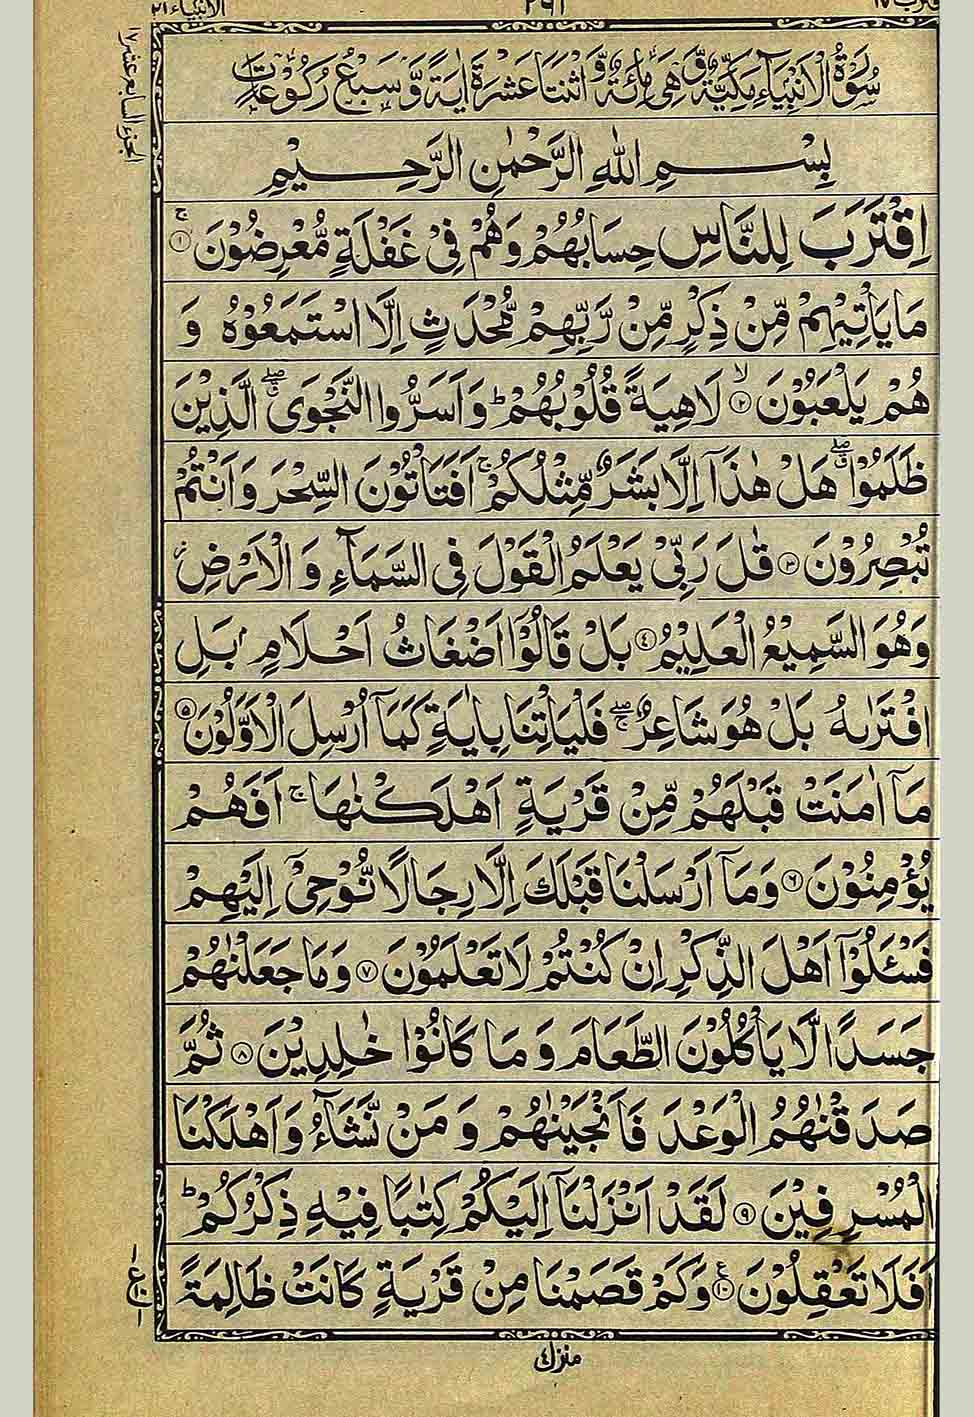 الانبیاء ٢١
٢٩١
اقترب ١٧
الجزء السابع عشر ١٧
سُوْرَةُ الْاَنْبِيَآءِ مَكِّيَّةٌ وَّهِیَ مِائَةٌ وَّ اثْنَتَا عَشَرَةَ اٰيَةً وَّ سَبْعُ رُكُوْعَاتٍ
بِسْمِ اللّٰهِ الرَّحْمٰنِ الرَّحِيْمِ
اِقْتَرَبَ لِلنَّاسِ حِسَابُهُمْ وَهُمْ فِیْ غَفْلَةٍ مُّعْرِضُوْنَ ۚ ١
مَا يَاْتِيْهِمْ مِّنْ ذِكْرٍ مِّنْ رَّبِّهِمْ مُّحْدَثٍ اِلَّا اسْتَمَعُوْهُ وَ
هُمْ يَلْعَبُوْنَ ۙ ٢ لَاهِيَةً قُلُوْبُهُمْ ؕ وَاَسَرُّوا النَّجْوَی ۖ الَّذِيْنَ
ظَلَمُوْا ۖ هَلْ هٰذَآ اِلَّا بَشَرٌ مِّثْلُكُمْ ۚ اَفَتَاْتُوْنَ السِّحْرَ وَاَنْتُمْ
تُبْصِرُوْنَ ٣ قٰلَ رَبِّیْ يَعْلَمُ الْقَوْلَ فِی السَّمَآءِ وَ الْاَرْضِ ز
وَهُوَ السَّمِيْعُ الْعَلِيْمُ ٤ بَلْ قَالُوْۤا اَضْغَاثُ اَحْلَامٍۭ بَلِ
افْتَرٰىهُ بَلْ هُوَ شَاعِرٌ ۖۚ فَلْيَاْتِنَا بِاٰيَةٍ كَمَآ اُرْسِلَ الْاَوَّلُوْنَ ٥
مَآ اٰمَنَتْ قَبْلَهُمْ مِّنْ قَرْيَةٍ اَهْلَكْنٰهَا ۚ اَفَهُمْ
يُؤْمِنُوْنَ ٦ وَمَآ اَرْسَلْنَا قَبْلَكَ اِلَّا رِجَالًا نُّوْحِیْۤ اِلَيْهِمْ
فَسْـَٔلُوْۤا اَهْلَ الذِّكْرِ اِنْ كُنْتُمْ لَا تَعْلَمُوْنَ ٧ وَمَا جَعَلْنٰهُمْ
جَسَدًا لَّا يَاْكُلُوْنَ الطَّعَامَ وَ مَا كَانُوْا خٰلِدِيْنَ ٨ ثُمَّ
صَدَقْنٰهُمُ الْوَعْدَ فَاَنْجَيْنٰهُمْ وَ مَنْ نَّشَآءُ وَاَهْلَكْنَا
الْمُسْرِفِيْنَ ٩ لَقَدْ اَنْزَلْنَآ اِلَيْكُمْ كِتٰبًا فِيْهِ ذِكْرُكُمْ ؕ
اَفَلَا تَعْقِلُوْنَ ۧ ١٠ وَكَمْ قَصَمْنَا مِنْ قَرْيَةٍ كَانَتْ ظَالِمَةً
منزل ٤